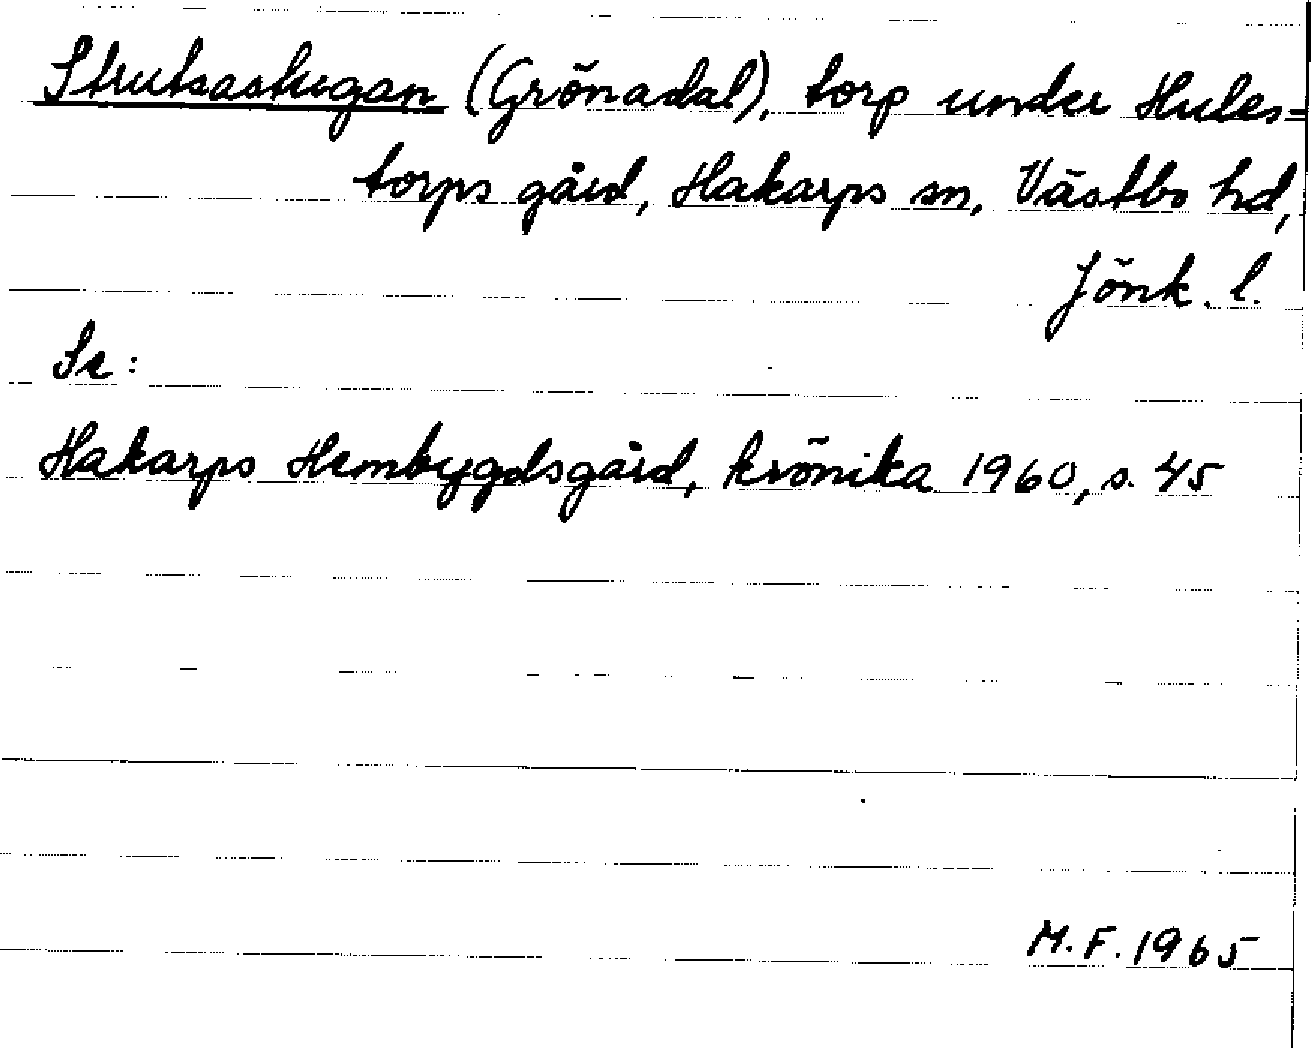 Strutsastugan (Grönadal), torp under Hules-
torps gård, Hakarps sn, Västbo hd,
Jönk. l.
Se:
Hakarps Hembygdsgård, krönika 1960, s. 45
M.F. 1965